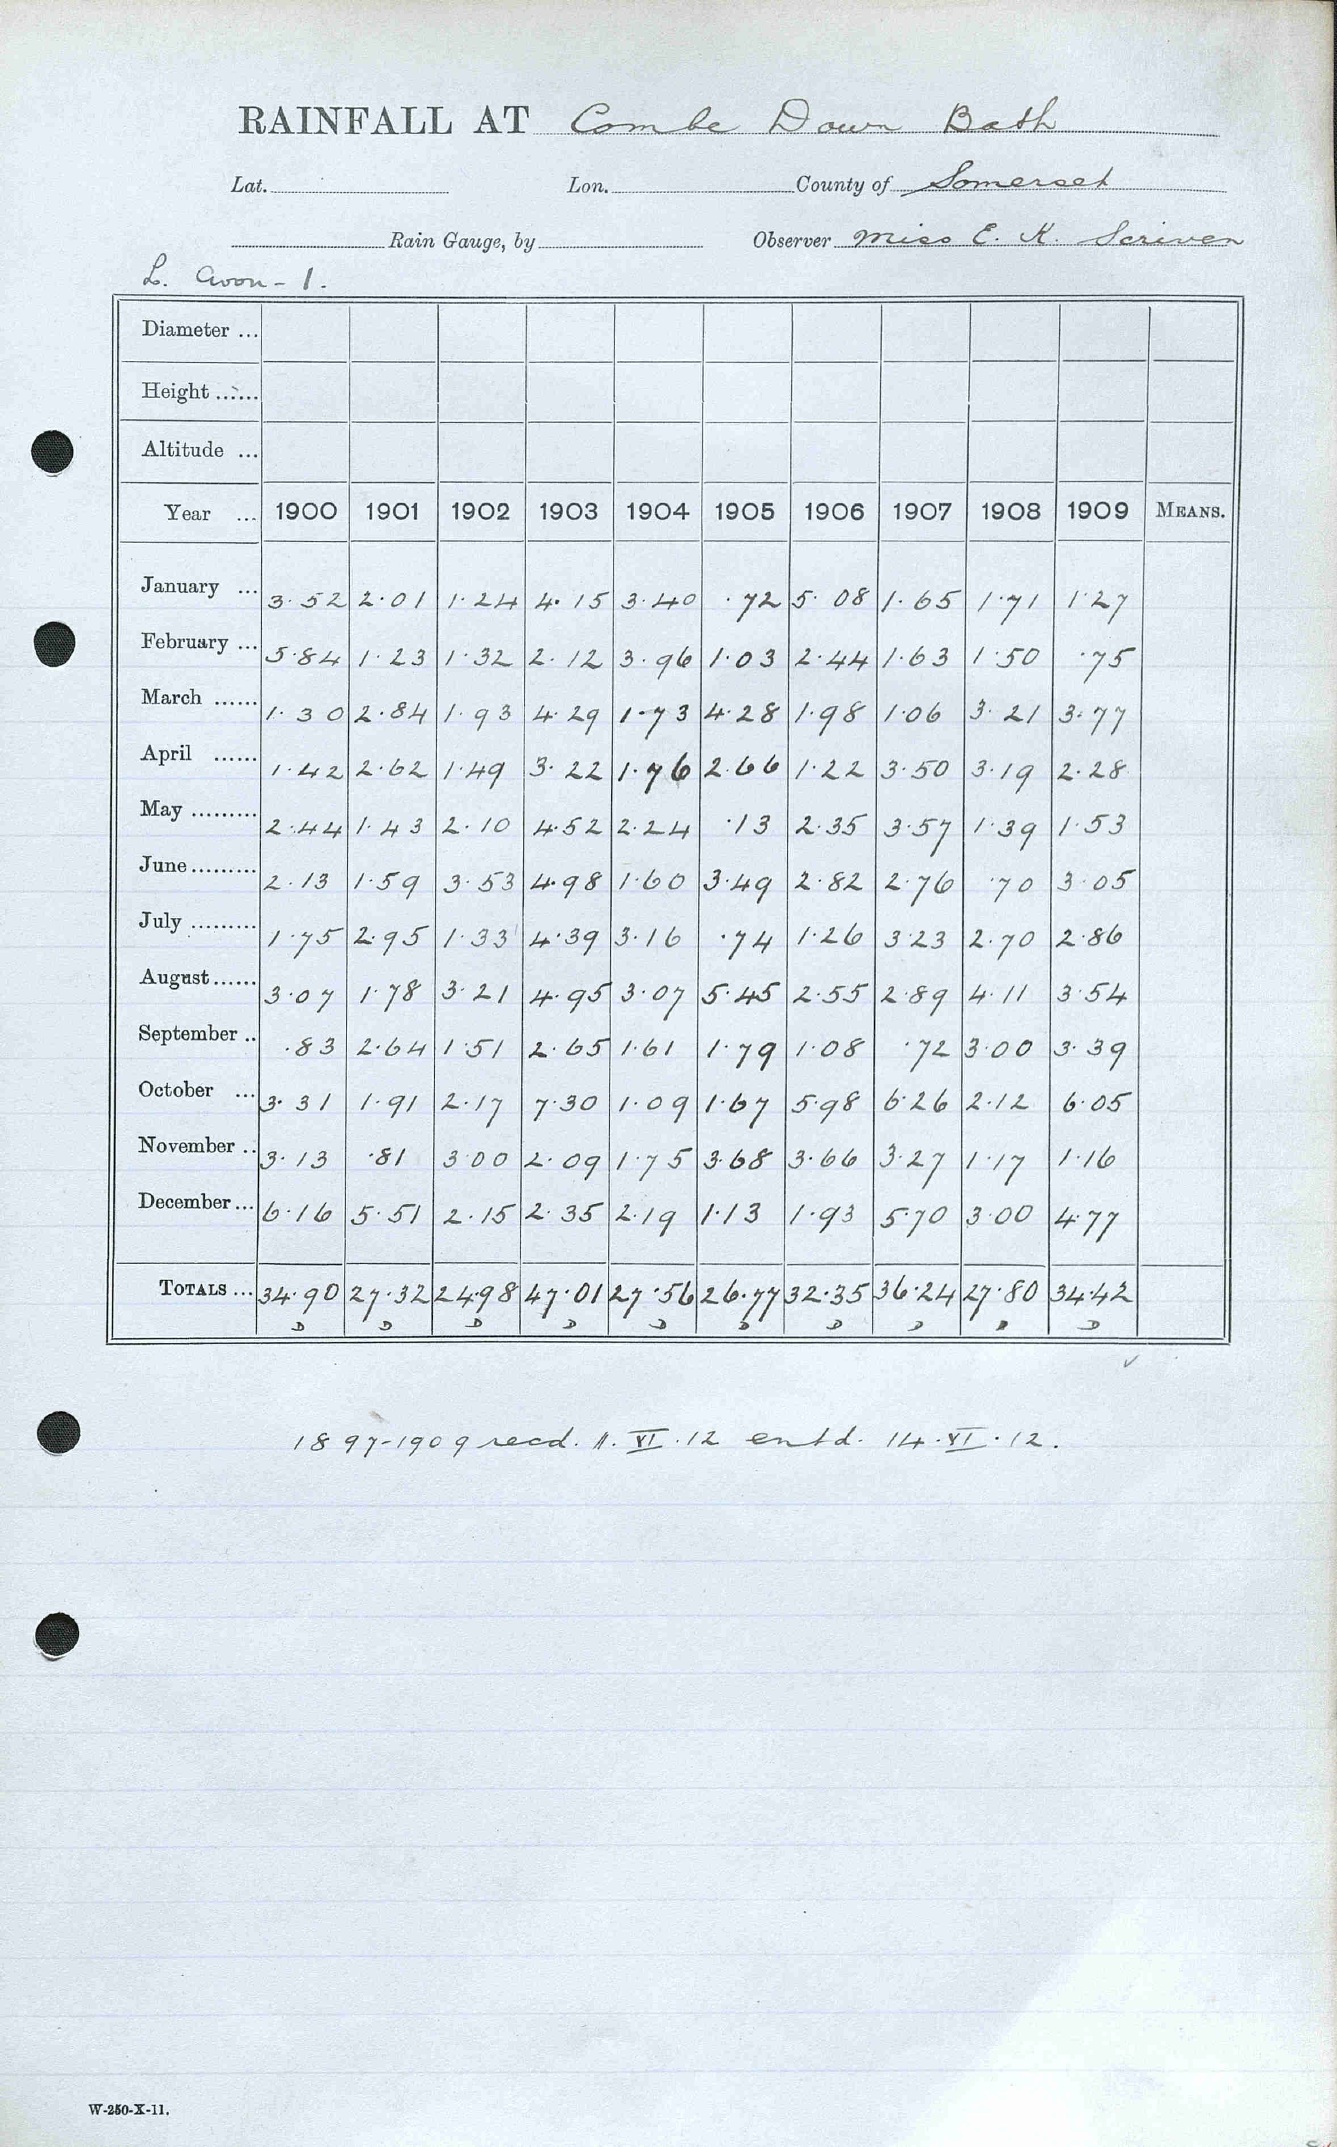 RAINFALL AT Combe Down Bath
Lat. Lon. County of Somerset
Rain Gauge, by Observer Miss E. K. Scriven
L. Avon - 1.
Diameter ...
Height ......
Altitude ...
Year ... 1900 1901 1902 1903 1904 1905 1906 1907 1908 1909 MEANS.
January ... 3.52 2.01 1.24 4.15 3.40 .72 5.08 1.65 1.71 1.27
February ... 5.84 1.23 1.32 2.12 3.96 1.03 2.44 1.63 1.50 .75
March ...... 1.30 2.84 1.93 4.29 1.73 4.28 1.98 1.06 3.21 3.77
April ...... 1.42 2.62 1.49 3.22 1.76 2.66 1.22 3.50 3.19 2.28
May ......... 2.44 1.43 2.10 4.52 2.24 .13 2.35 3.57 1.39 1.53
June ......... 2.13 1.59 3.53 4.98 1.60 3.49 2.82 2.76 .70 3.05
July ......... 1.75 2.95 1.33 4.39 3.16 .74 1.26 3.23 2.70 2.86
August ...... 3.07 1.78 3.21 4.95 3.07 5.45 2.55 2.89 4.11 3.54
September .. .83 2.64 1.51 2.65 1.61 1.79 1.08 .72 3.00 3.39
October ... 3.31 1.91 2.17 7.30 1.09 1.67 5.98 6.26 2.12 6.05
November .. 3.13 .81 3.00 2.09 1.75 3.68 3.66 3.27 1.17 1.16
December ... 6.16 5.51 2.15 2.35 2.19 1.13 1.93 5.70 3.00 4.77
TOTALS ... 34.90 27.32 24.98 47.01 27.56 26.77 32.35 36.24 27.80 34.42
D D D D D D D D D D
1897-1909 recd. 11.VI.12 entd. 14.VI.12.
W-250-X-11.